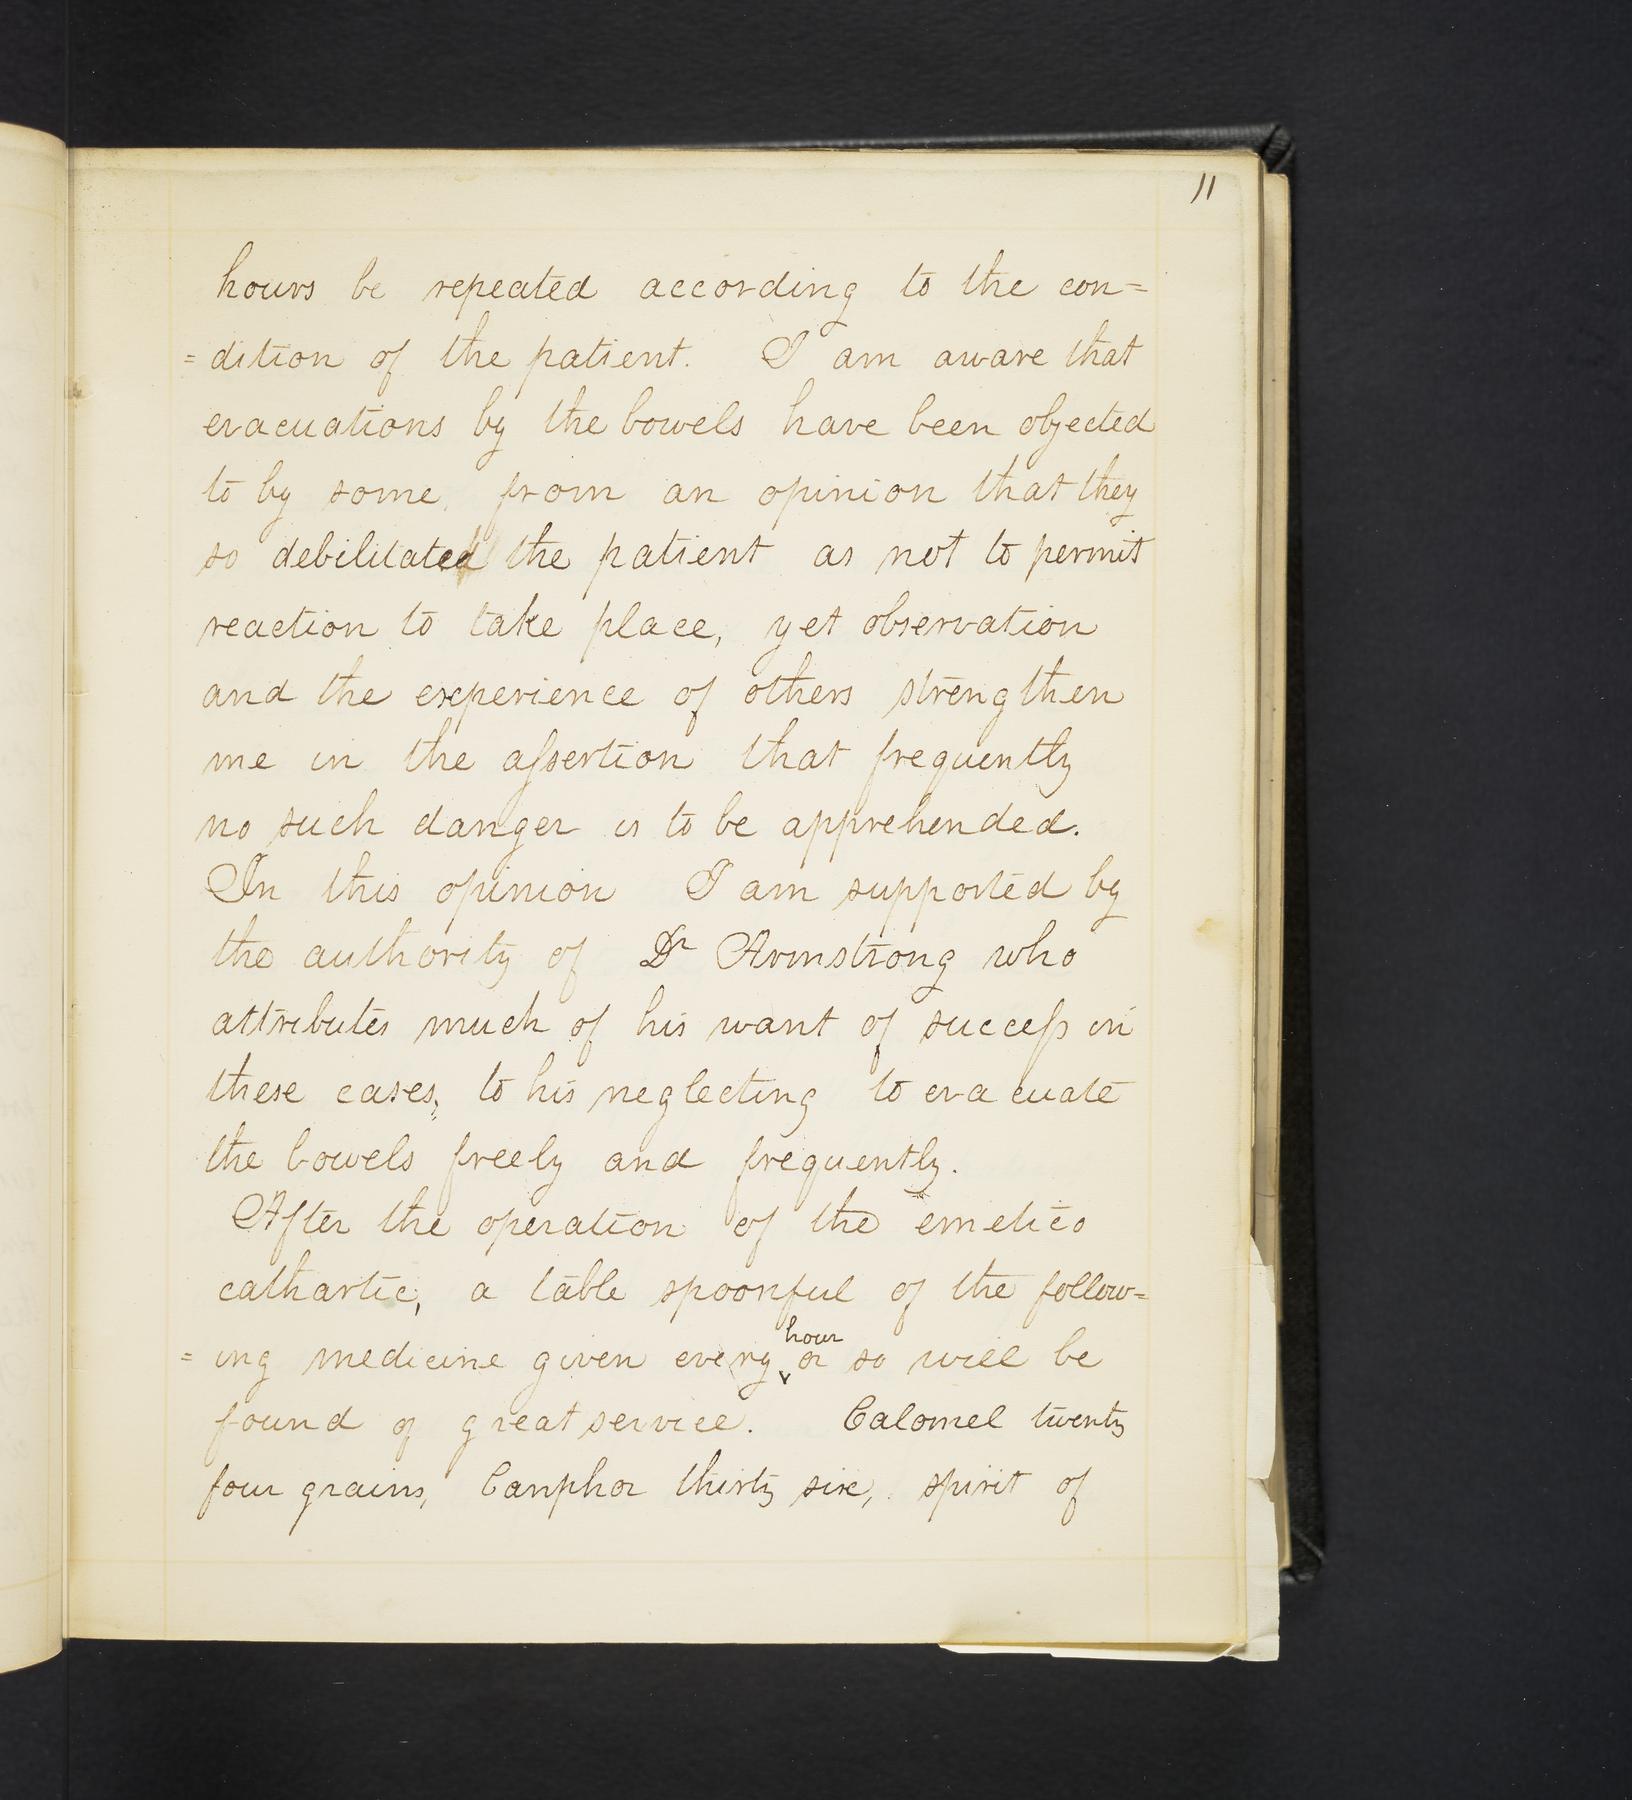 11
hours be repeated according to the con=
=dition of the patient. I am aware that
evacuations by the bowels have been objected
to by some, from an opinion that they
so debilitated the patient as not to permit
reaction to take place, yet observation
and the experience of others strengthen
me in the aſsertion that frequently
no such danger is to be apprehended.
In this opinion I am supported by
the authority of Dr Armstrong who
attributes much of his want of succeſs in
these cases, to his neglecting to evacuate
the bowels freely and frequently.
After the operation of the emetico
cathartic, a table spoonful of the follow=
hour
=ing medicine given every or so will be
found of great service. Calomel twenty
four grains, Canphor thirty six, spirit of